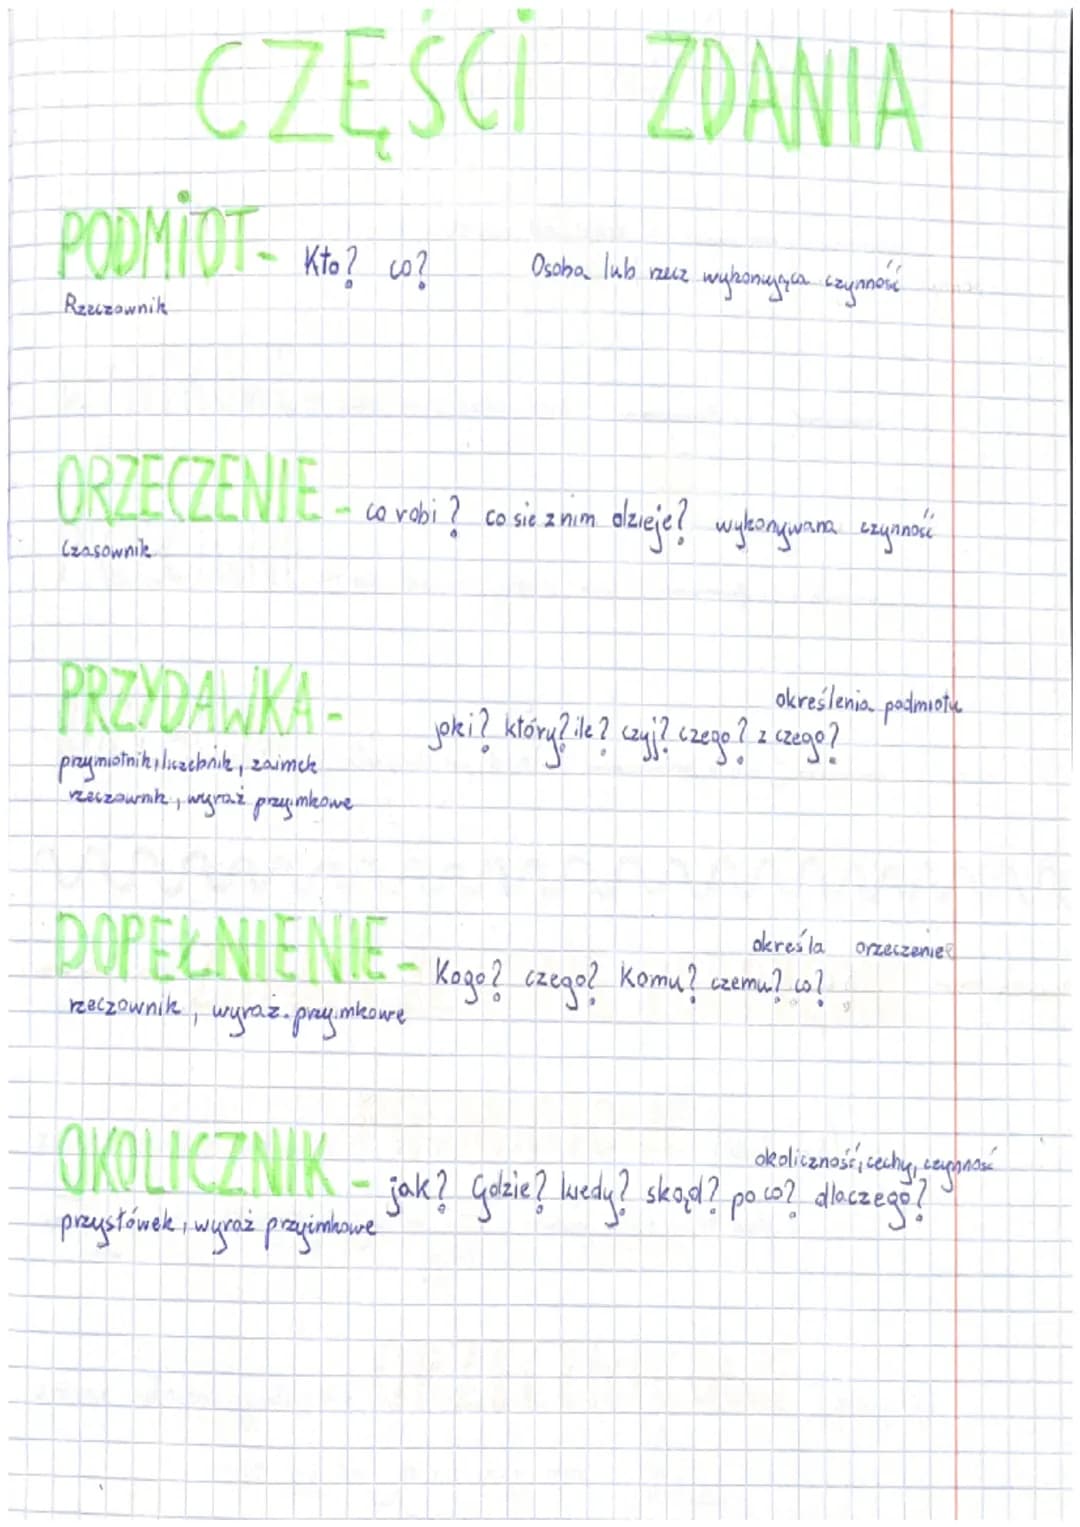 CZĘŚCI ZDANIA
PODMIOT- Kto? co? Osoba lub rzecz wykonująca czynność
Rzeczownik
ORZECZENIE - co robi? co sie z nim dzieje? wykonywana czynność
Czasownik
określenia podmiotu
PRZYDAWKA - jaki? który? ile? czyj? czego? z czego?
przymiotnik, liczebnik, zaimek
rzeczownik, wyraż przyimkowe
określa orzeczenie
DOPEŁNIENIE - Kogo? czego? Komu? czemu? co?
rzeczownik, wyraż. przyimkowe
okoliczność, cechy, czynność
OKOLICZNIK - jak? Gdzie? kiedy? skąd? po co? dlaczego?
przysłówek, wyraż przyimkowe